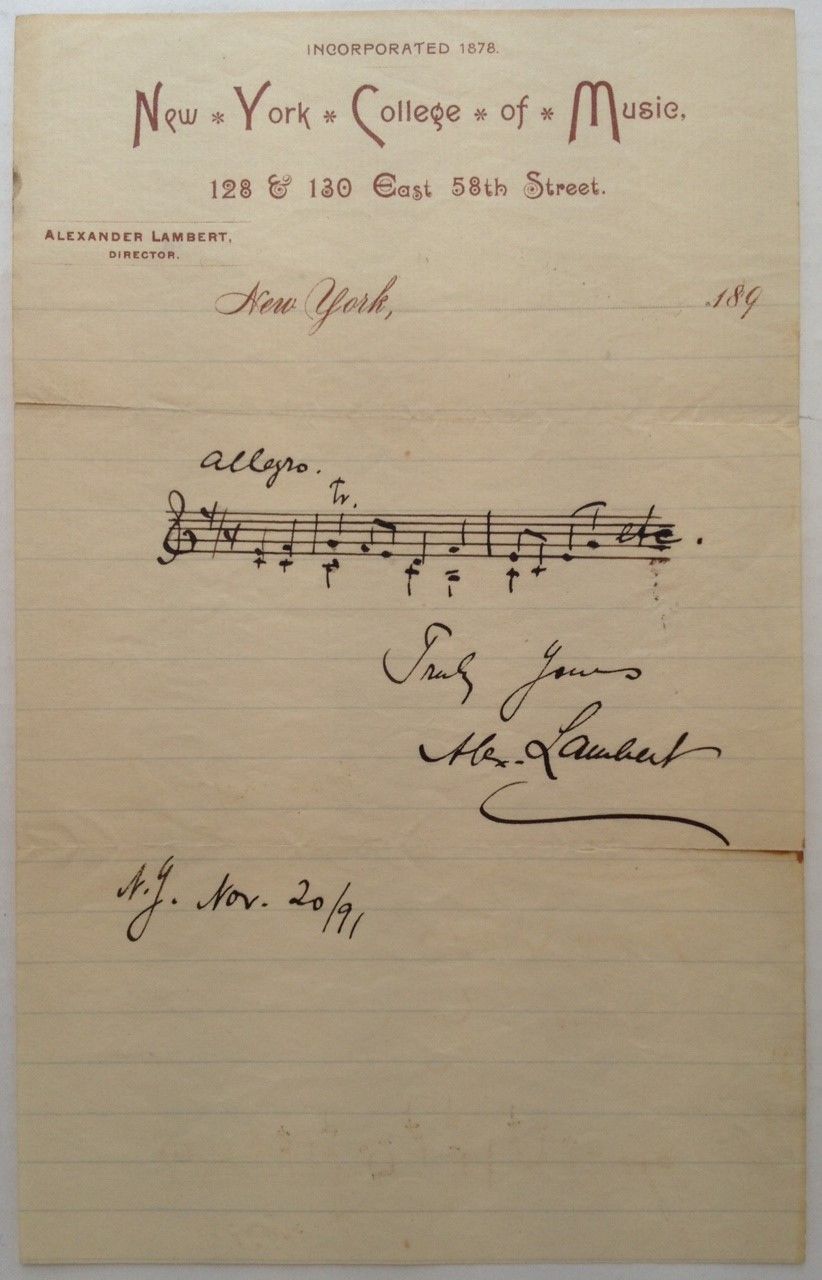 INCORPORATED 1878.
New * York * College * of * Music,
128 & 130 East 58th Street.
ALEXANDER LAMBERT,
DIRECTOR.
New York, 189
allegro.
tr.
etc.
Truly Yours
Alex. Lambert
N.Y. Nov. 20/91